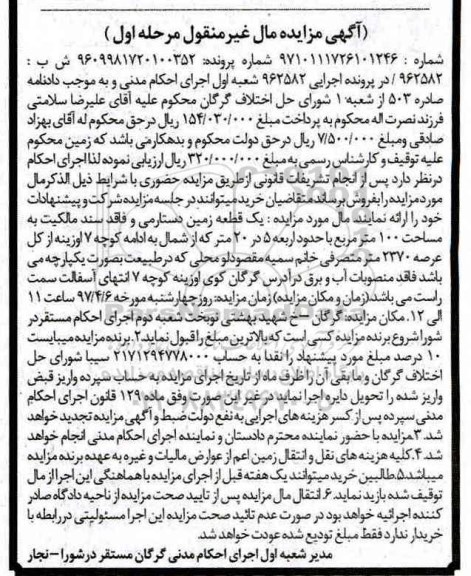 (آگهی مزایده مال غیر منقول مرحله اول)
شماره : ۹۷۱۰۱۱۱۷۲۶۱۰۱۲۴۶ شماره پرونده: ۹۶۰۹۹۸۱۷۲۰۱۰۰۳۵۲ ش ب :
۹۶۲۵۸۲ / در پرونده اجرایی ۹۶۲۵۸۲ شعبه اول اجرای احکام مدنی و به موجب دادنامه
صادره ۵۰۳ از شعبه ۱ شورای حل اختلاف گرگان محکوم علیه آقای علیرضا سلامتی
فرزند نصرت اله محکوم به پرداخت مبلغ ۱۵۴/۰۳۰/۰۰۰ ریال در حق محکوم له آقای بهزاد
صادقی ومبلغ ۷/۵۰۰/۰۰۰ ریال در حق دولت محکوم و بدهکار می باشد که زمین محکوم
علیه توقیف و کارشناس رسمی به مبلغ ۳۲۰/۰۰۰/۰۰۰ ریال ارزیابی نموده لذا اجرای احکام
در نظر دارد پس از انجام تشریفات قانونی از طریق مزایده حضوری با شرایط ذیل الذکر مال
مورد مزایده را بفروش برساند متقاضیان خرید میتوانند در جلسه مزایده شرکت و پیشنهادات
خود را ارائه نمایند مال مورد مزایده : یک قطعه زمین دستارمی و فاقد سند مالکیت به
مساحت ۱۰۰ متر مربع با حدود اربعه ۵ در ۲۰ متر که از شمال به ادامه کوچه ۷ اوزینه از کل
عرصه ۲۳۷۰ متر متصرفی خانم سمیه مقصودلو محلی که در طبیعت بصورت یکپارچه می
باشد فاقد منصوبات آب و برق در آدرس گرگان کوی اوزینه کوچه ۷ انتهای آسفالت سمت
راست می باشد.(زمان و مکان مزایده) زمان مزایده: روز چهارشنبه مورخه ۹۷/۴/۶ ساعت ۱۱
الی ۱۲. مکان مزایده: گرگان – خ شهید بهشتی نوبخت شعبه دوم اجرای احکام مستقر در
شورا شروع برنده مزایده کسی است که بالاترین مبلغ را قبول نماید ۲.برنده مزایده میبایست
۱۰ درصد مبلغ مورد پیشنهاد را نقدا به حساب ۲۱۷۱۲۹۴۷۷۸۰۰۰ سیبا شورای حل
اختلاف گرگان و مابقی آن را ظرف ماه از تاریخ اجرای مزایده به حساب سپرده واریز قبض
واریز شده را تحویل دایره اجرا نماید در غیر این صورت وفق ماده ۱۲۹ قانون اجرای احکام
مدنی سپرده پس از کسر هزینه های اجرایی به نفع دولت ضبط و آگهی مزایده تجدید خواهد
شد.۳مزایده با حضور نماینده محترم دادستان و نماینده اجرای احکام مدنی انجام خواهد
شد.۴.کلیه هزینه های نقل و انتقال زمین اعم از عوارض مالیات و غیره به عهده برنده مزایده
میباشد.۵.طالبین خرید میتوانند یک هفته قبل از اجرای مزایده با هماهنگی این اجرا از مال
توقیف شده بازدید نماید.۶.انتقال مال مزایده پس از تایید صحت مزایده از ناحیه دادگاه صادر
کننده اجرائیه خواهد بود در صورت عدم تائید صحت مزایده این اجرا مسئولیتی در رابطه با
خریدار ندارد فقط مبلغ تودیع شده عودت خواهد شد.
مدیر شعبه اول اجرای احکام مدنی گرگان مستقر در شورا – نجار